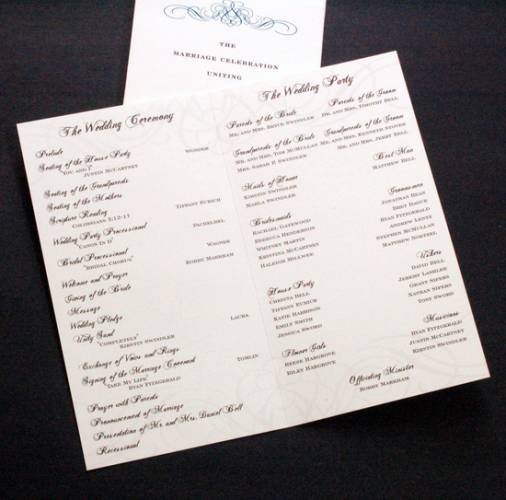 THE
MARRIAGE CELEBRATION
UNITING
The Wedding Ceremony
Prelude
Seating of the House Party WONDER
"YOU AND I" JUSTIN MCCARTNEY
Seating of the Grandparents
Seating of the Mothers
Scripture Reading TIFFANY EURICH
COLOSSIANS 3:12-15
Wedding Party Processional PACHELBEL
"CANON IN D"
Bridal Processional WAGNER
"BRIDAL CHORUS" BOBBY MARKHAM
Welcome and Prayer
Giving of the Bride
Message
Wedding Pledge
Unity Sand LAURA
"COMPLETELY" KIRSTIN SWINDLER
Exchange of Vows and Rings
Signing of the Marriage Covenant TOMLIN
"TAKE MY LIFE" RYAN FITZGERALD
Prayer with Parents
Pronouncement of Marriage
Presentation of Mr. and Mrs. Daniel Bell
Recessional
The Wedding Party
Parents of the Bride
MR. AND MRS. BRUCE SWINDLER
Parents of the Groom
DR. AND MRS. TIMOTHY BELL
Grandparents of the Bride
MR. AND MRS. TOM MCMULLAN
MRS. SARAH P. SWINDLER
Grandparents of the Groom
MR. AND MRS. KENNETH STOVER
MR. AND MRS. JERRY BELL
Maids of Honor
KIRSTIN SWINDLER
MARLA SWINDLER
Best Man
MATTHEW BELL
Bridesmaids
RACHAEL GATEWOOD
REBECCA HENDERSON
WHITNEY MARTIN
KRISTINA MCCARTNEY
HALEIGH MILWEE
Groomsmen
JONATHAN BEAN
BRET HAUGH
RYAN FITZGERALD
ANDREW LENTZ
STEPHEN MCMULLAN
MATTHEW
House Party
CHRISTA BELL
TIFFANY EURICH
KATIE HARBISON
EMILY SMITH
JESSICA SWORD
Ushers
DAVID BELL
JEREMY LANSLER
GRANT SIPERS
NATHAN SIPERS
TONY SWORD
Flower Girls
REESE HARGROVE
RILEY HARGROVE
Musicians
RYAN FITZGERALD
JUSTIN MCCARTNEY
KIRSTIN SWINDLER
Officiating Minister
BOBBY MARKHAM